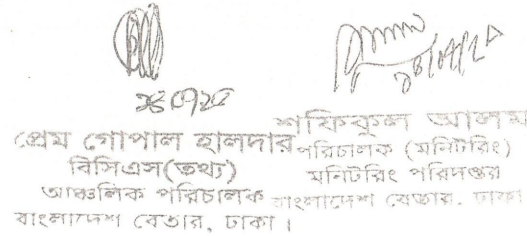 প্রেম গোপাল হালদার
বিসিএস(তথ্য)
আঞ্চলিক পরিচালক
বাংলাদেশ বেতার, ঢাকা।
শফিকুল আলম
পরিচালক (মনিটরিং)
মনিটরিং পরিদপ্তর
বাংলাদেশ বেতার, ঢাকা